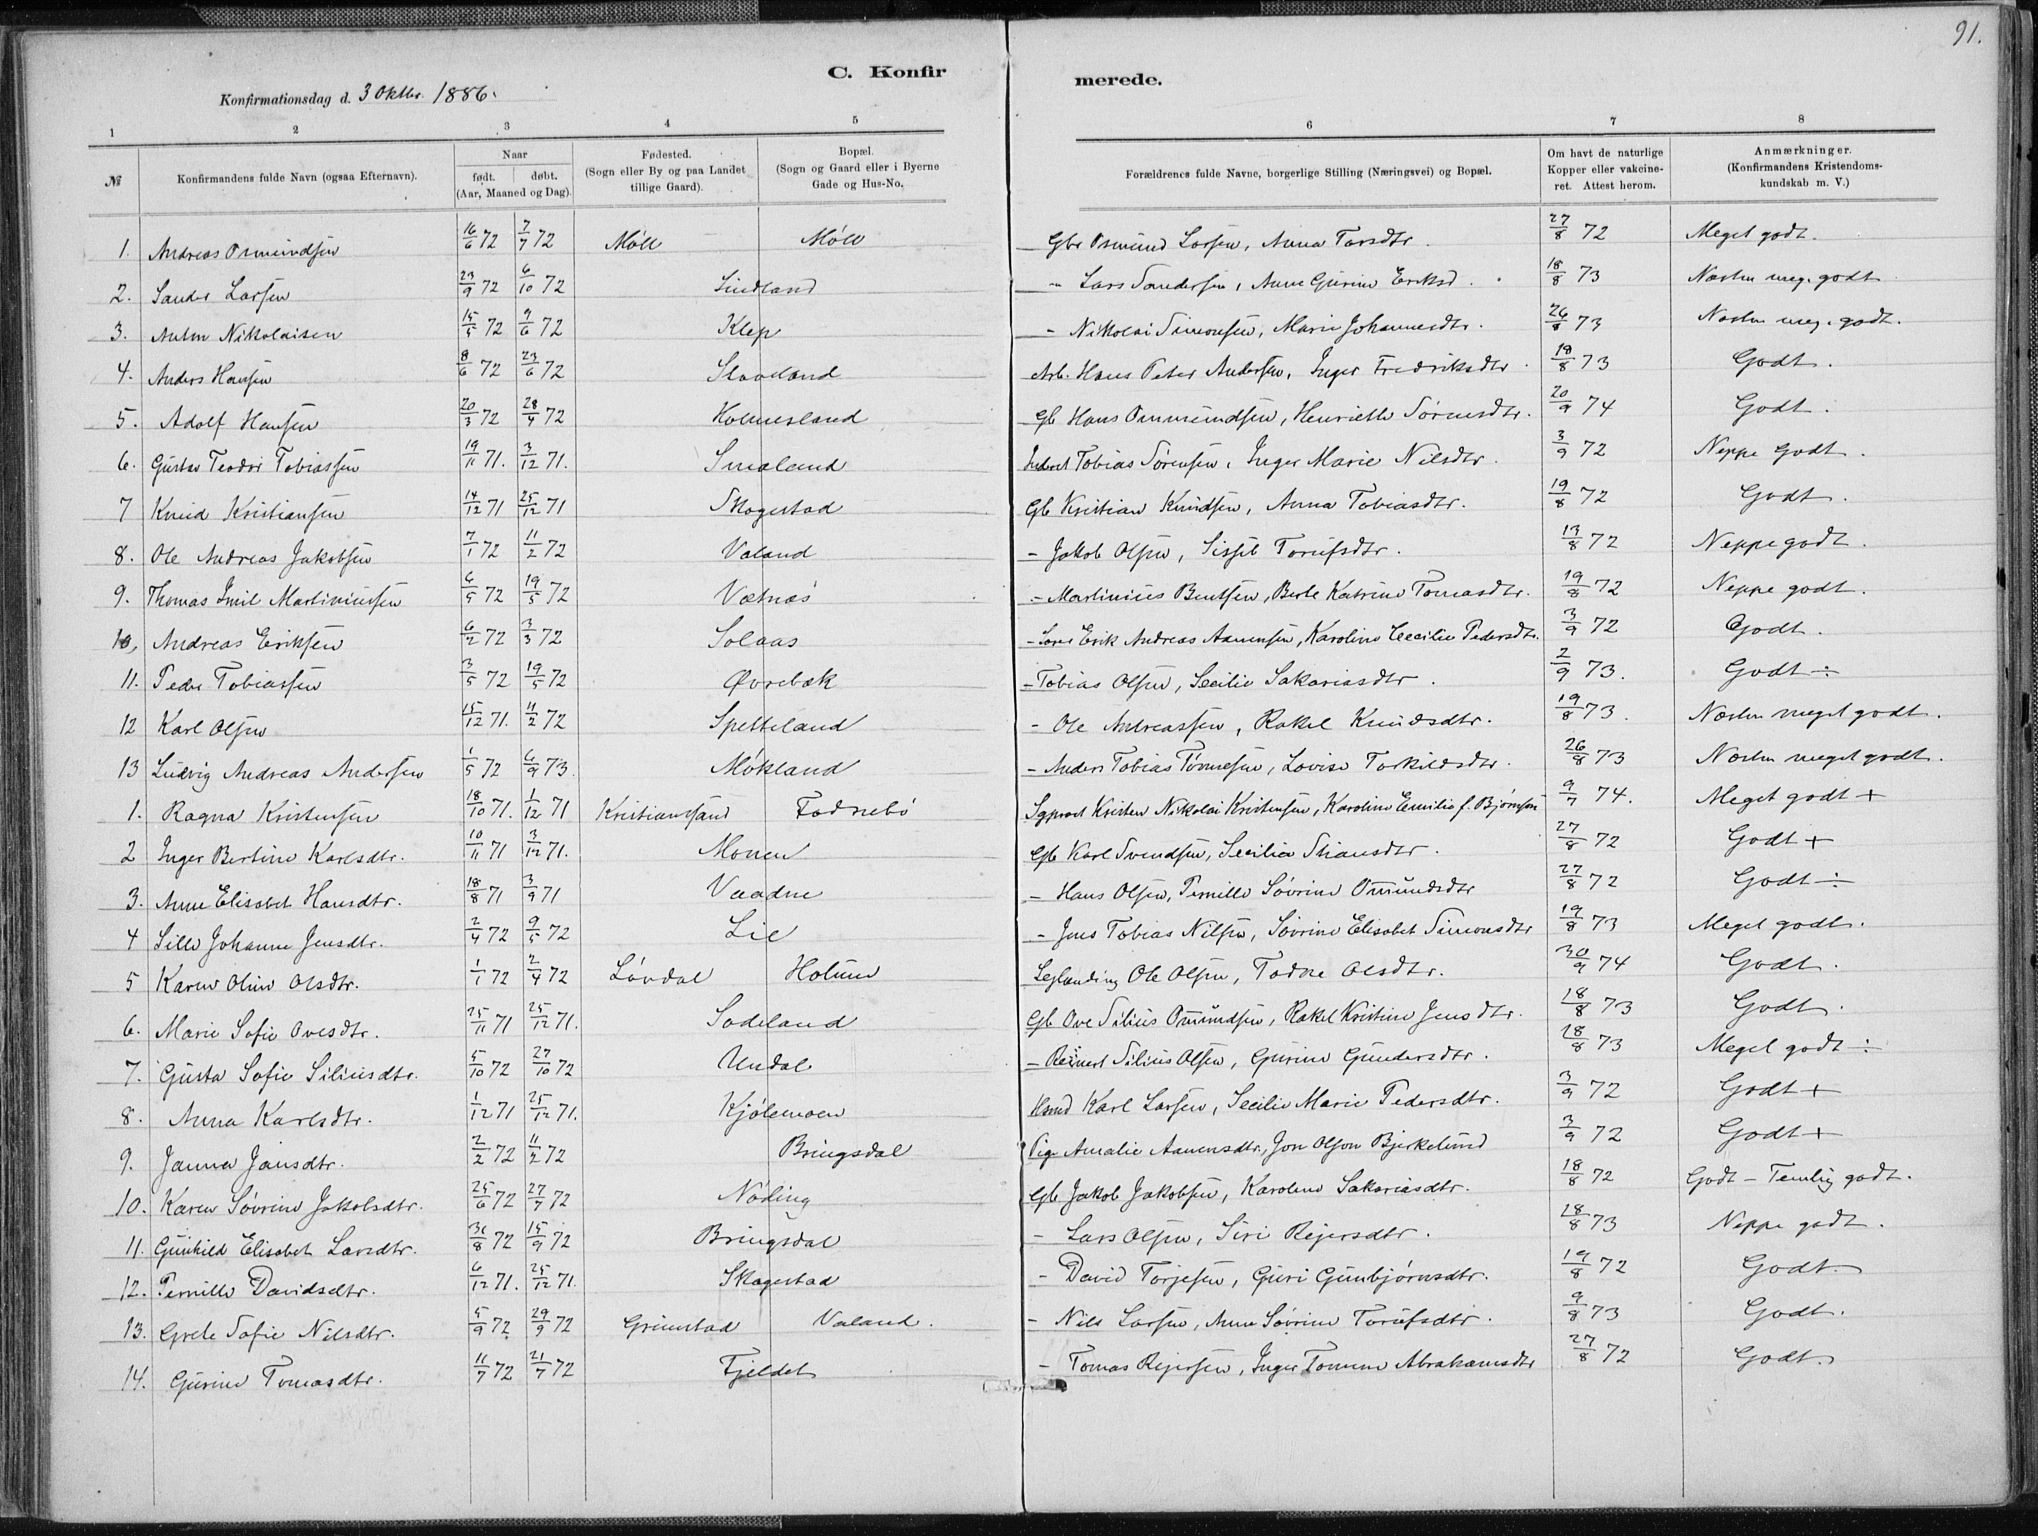 91.
C. Konfirmerede.
Konfirmationsdag d. 3 Oktbr. 1886.
1 2 3 4 5 6 7 8
№ Konfirmandens fulde Navn (ogsaa Efternavn). Naar født. døbt. (Aar, Maaned og Dag). Fødested. (Sogn eller By og paa Landet tillige Gaard). Bopæl. (Sogn og Gaard eller i Byerne Gade og Hus-No. Forældrenes fulde Navne, borgerlige Stilling (Næringsvei) og Bopæl. Om havt de naturlige Kopper eller vakcineret. Attest herom. Anmærkninger. (Konfirmandens Kristendomskundskab m. V.)
1. Andreas Osmundsen 16/6 72 7/7 72 Møll Møll Gbr Osmund Larsen, Anna Tarsdtr. 27/8 72 Meget godt.
2. Sander Larsen 23/9 72 6/10 72 Lindland " Lars Sandersen, Anne Gurine Eriksd. 18/8 73 Næsten meg. godt
3. Anton Nikolaisen 15/5 72 9/6 72 Klep - Nikolai Simonsen, Marie Johannesdtr. 26/8 73 Næsten meg. godt.
4. Anders Hansen 8/6 72 23/6 72 Staveland Arb. Hans Peter Andersen, Inger Fredriksdtr. 18/8 73 Godt.
5. Adolf Hansen 20/3 72 28/4 72 Holmesland Gb Hans Ommundsen, Henriette Sørensdtr. 20/9 74 Godt.
6. Gustav Teodor Tobiassen 19/11 71. 3/12 71. Smaland Tobias Sørensen, Inger Marie Nilsdtr. 3/9 72 Neppe Godt.
7 Knud Kristiansen 14/12 71 25/12 71 Skogestad Gb Kristian Knudsen, Anna Tobiasdtr. 19/8 72 Godt.
8. Ole Andreas Jakobsen 7/1 72 11/2 72 Valand - Jakob Olsen, Sissel Torufsdtr. 13/8 72 Neppe godt.
9. Thomas Emil Martiniussen 6/5 72 19/5 72 Vætnæs - Martinius Bentsen, Berte Katrine Tomasdtr. 19/8 72 Neppe godt.
10, Andreas Eriksen 6/2 72 3/3 72 Solaas - Erik Andreas Aanensen, Karoline Cecilie Pedersdtr. 3/9 72 Godt.
11. Peder Tobiassen 3/5 72 19/5 72 Øvrebæk - Tobias Olsen, Secilie Sakariasdtr. 2/9 73. Godt ÷
12 Karl Olsen 15/12 71. 11/2 72 Spetteland - Ole Andreassen, Rakel Knudsdtr. 19/8 73. Næsten meget godt.
13 Ludvig Andreas Andersen 1/5 72 6/9 73. Møkland - Anders Tobias Tønnesen, Lovise Torkildsdtr. 26/8 73 Næsten meget godt.
1. Ragna Kristensen 18/10 71. 1/12 71 Kristianssand Fodnebø Sgprest Kristen Nikolai Kristensen, Karoline Emilie f. Bjørnsen 9/7 74. Meget godt +
2 Inger Bertine Karlsdtr. 10/11 71 3/12 71. Monen Gb Karl Svendsen, Secilia Stiansdtr. 27/8 72 Godt +
3. Anne Elisabet Hansdtr. 18/8 71 3/9 71 Vaadne - Hans Olsen, Pernille Søvrine Omundsdtr 27/8 72 Godt ÷
4 Sille Johanne Jensdtr. 2/4 72 9/5 72 Lie - Jens Tobias Nilsen, Søvrine Elisabet Simonsdtr 19/8 73 Meget godt.
5 Karen Oline Olsdtr. 1/1 72 2/4 72 Løvdal Holum Leglænding Ole Olsen, Todne Olsdtr. 30/9 74 Godt.
6. Marie Sofie Ovesdtr. 25/11 71 25/12 71. Sodeland Gb Ove Silius Omundsen, Rakel Kristine Jensdtr. 18/8 73 Godt.
7. Gusta Sofie Siliusdtr. 5/10 72 27/10 72 Undal - Reinert Silius Olsen, Gurine Gundersdtr. 18/8 73 Meget godt ÷
8. Anna Karlsdtr. 1/12 71 25/12 71. Kjølemoen Hsmd Karl Larsen, Secilie Marie Pedersdtr. 3/9 72 Godt +
9. Janna Jonsdtr. 2/2 72 11/2 72 Bringsdal Pige Amalie Aanensdtr, Jon Olson Bjerkelund 3/9 72 Godt +
10. Karen Søvrine Jakobsdtr. 25/6 72 27/7 72 Nøding Gb Jakob Jakobsen, Karoline Sakariasdtr. 18/8 72 Godt - Temlig godt.
11. Gunhild Elisabet Larsdtr. 31/8 72 15/9 72 Bringsdal - Lars Olsen, Siri Rejersdtr. 18/8 73 Neppe godt.
12. Pernille Davidsdtr. 6/12 71. 25/12 71. Skogestad - David Torjesen, Guri Gunbjørnsdtr. 19/8 72 Godt.
13. Grete Sofie Nilsdtr. 5/9 72 29/9 72 Grimstad Valand. - Nils Larsen, Anne Søvrine Torufsdtr. 9/8 73 Godt.
14. Gurine Tomasdtr. 11/7 72 21/7 72 Fjeldet - Tomas Rejersen, Inger Tomine Abrahamsdtr 27/8 72 Godt.